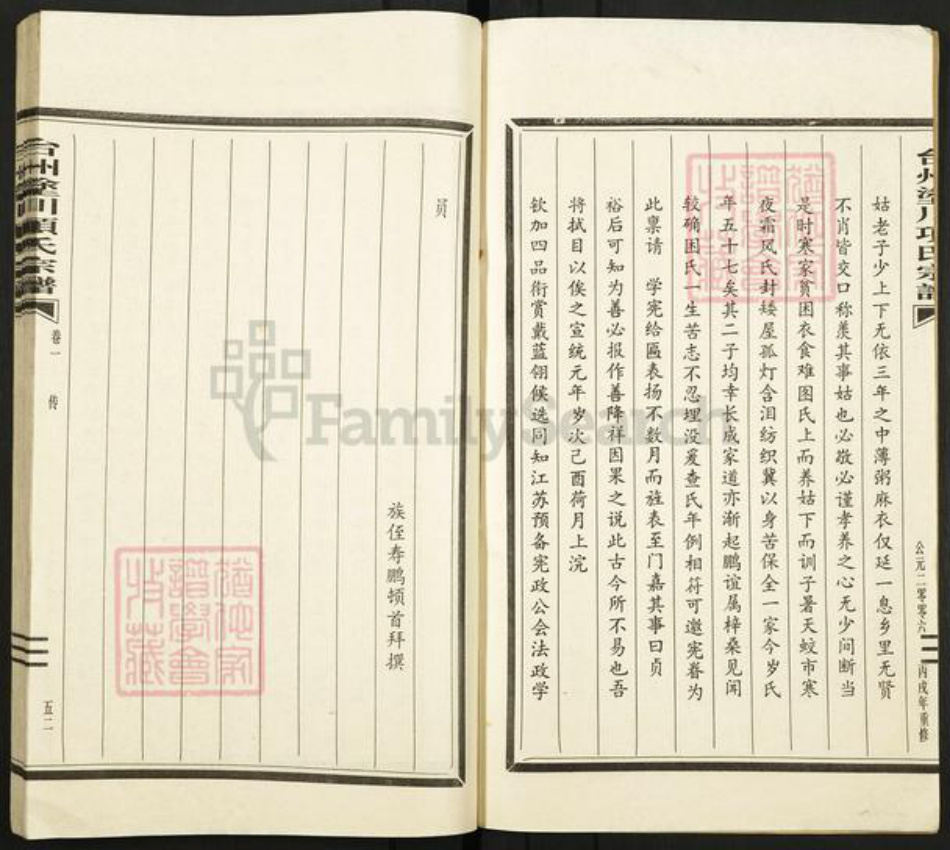 台州塗川項氏宗譜
公元二零零六
丙戌年重修
姑老子少上下无依三年之中薄粥麻衣仅延一息乡里无贤
不肖皆交口称羡其事姑也必敬必谨孝养之心无少间断当
是时寒家贫困衣食难图氏上而养姑下而训子暑天蚊市寒
夜霜风氏封矮屋孤灯含泪纺织冀以身苦保全一家今岁氏
年五十七矣其二子均幸长成家道亦渐起鹏谊属梓桑见闻
较确困氏一生苦志不忍埋没爰查氏年例相符可邀宪眷为
此禀请 学宪给匾表扬不数月而旌表至门嘉其事曰贞
裕后可知为善必报作善降祥因果之说此古今所不易也吾
将拭目以俟之宣统元年岁次己酉荷月上浣
钦加四品衔赏戴蓝翎候选同知江苏预备宪政公会法政学
员
族侄寿鹏顿首拜撰
台州塗川項氏宗譜
卷一 传
五二
FamilySearch